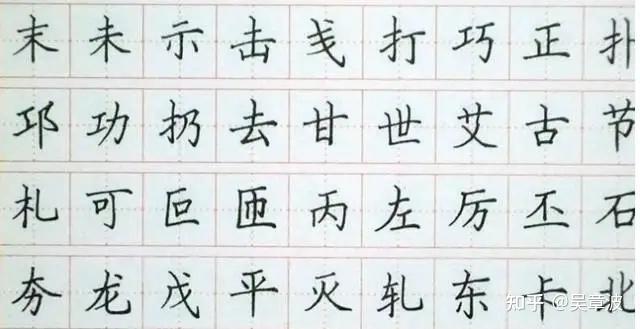 末未示击戋打巧正扑
邛功扔去甘世艾古节
札可叵匝丙左厉丕石
夯龙戊平灭轧东卡北
知乎 @吴章波